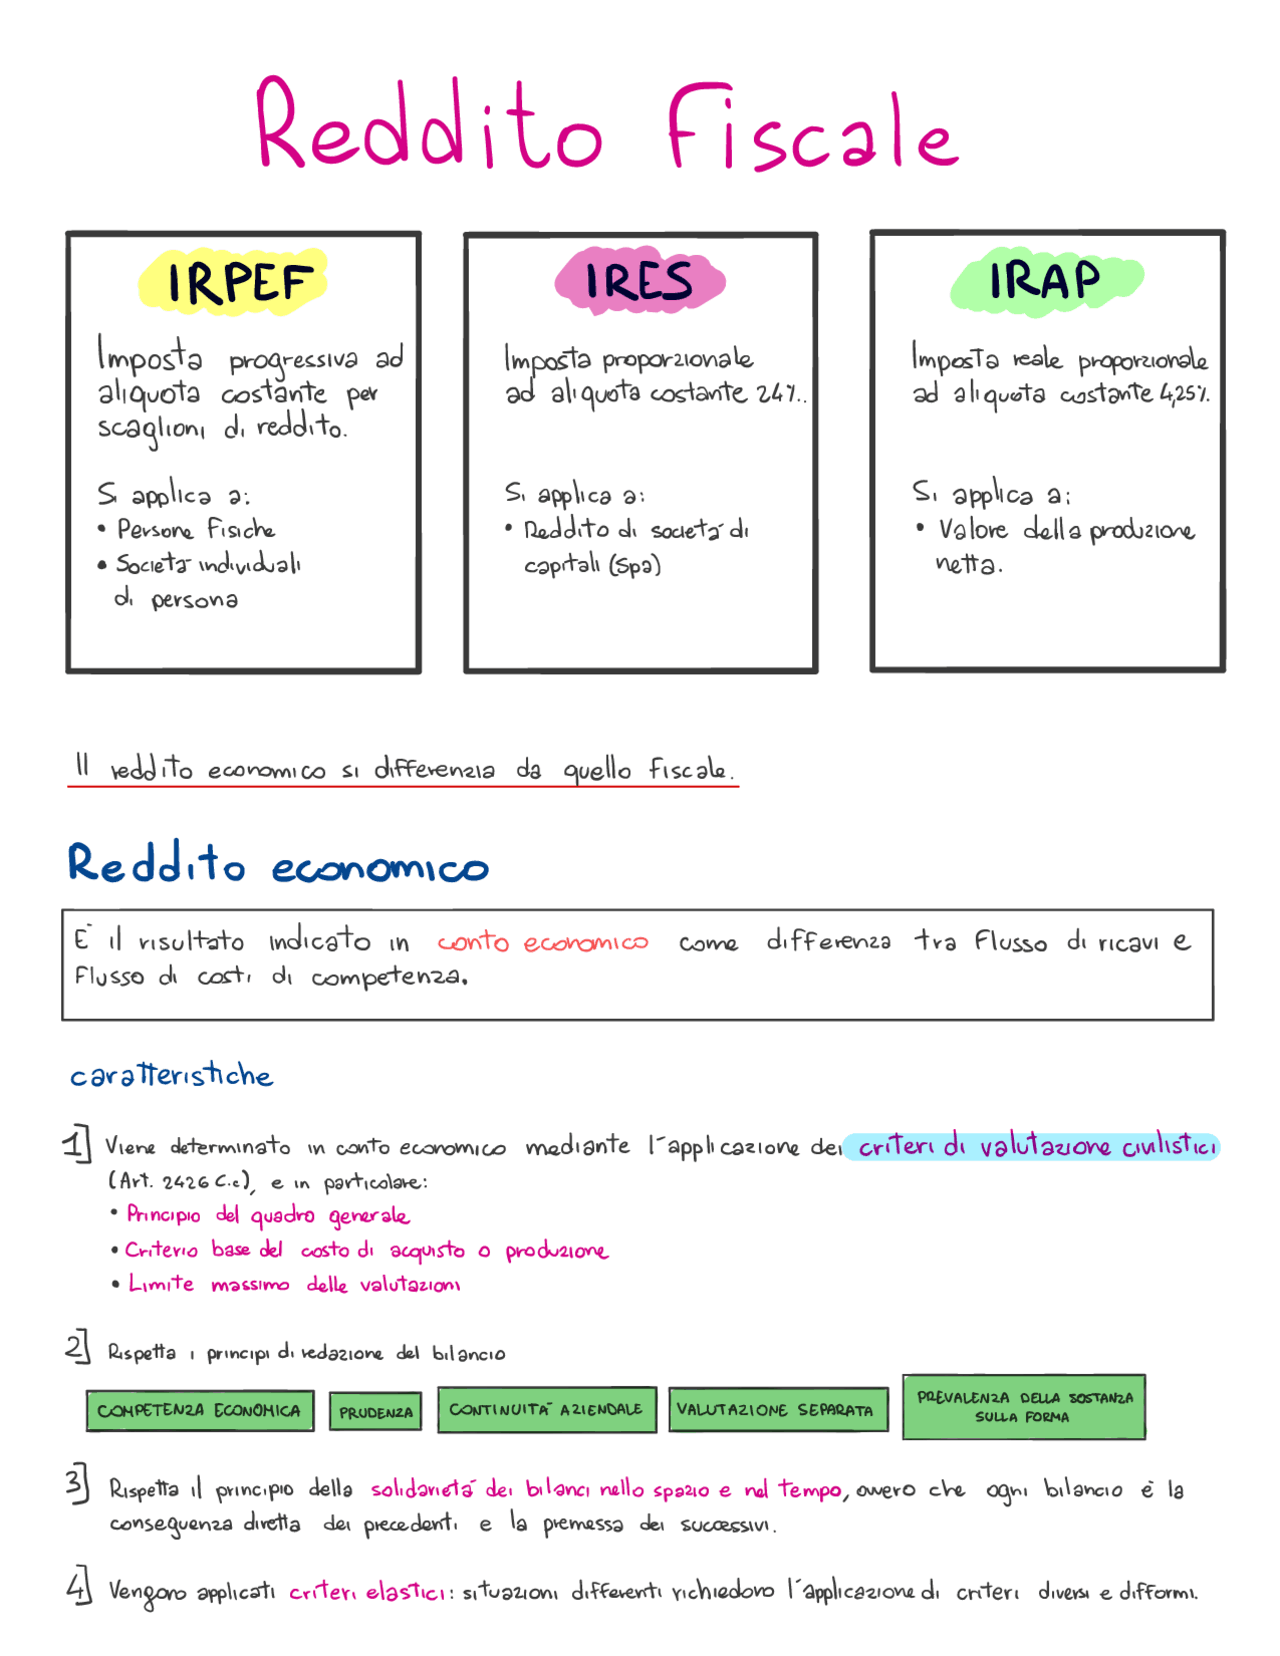 Reddito Fiscale
IRPEF
Imposta progressiva ad
aliquota costante per
scaglioni di reddito.
Si applica a:
• Persone Fisiche
• Società individuali
di persona
IRES
Imposta proporzionale
ad aliquota costante 24%.
Si applica a:
• Reddito di società di
capitali (Spa)
IRAP
Imposta reale proporzionale
ad aliquota costante 4,25%.
Si applica a:
• Valore della produzione
netta.
Il reddito economico si differenzia da quello fiscale.
Reddito economico
E' il risultato indicato in conto economico come differenza tra Flusso di ricavi e
Flusso di costi di competenza.
caratteristiche
1] Viene determinato in conto economico mediante l'applicazione dei criteri di valutazione civilistici
(Art. 2426 C.c), e in particolare:
• Principio del quadro generale
• Criterio base del costo di acquisto o produzione
• Limite massimo delle valutazioni
2] Rispetta i principi di redazione del bilancio
COMPETENZA ECONOMICA
PRUDENZA
CONTINUITA' AZIENDALE
VALUTAZIONE SEPARATA
PREVALENZA DELLA SOSTANZA
SULLA FORMA
3] Rispetta il principio della solidarietà dei bilanci nello spazio e nel tempo, ovvero che ogni bilancio è la
conseguenza diretta dei precedenti e la premessa dei successivi.
4] Vengono applicati criteri elastici: situazioni differenti richiedono l'applicazione di criteri diversi e difformi.